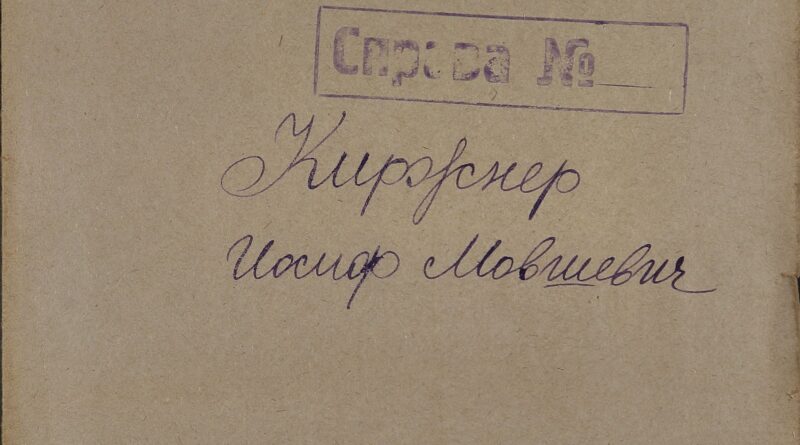 Справа №
Киржнер
Иосиф Мовшевич